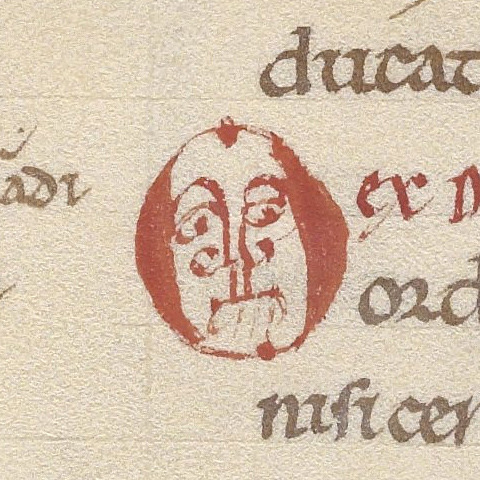 ducat
adi
O ex
ord
nisi cer